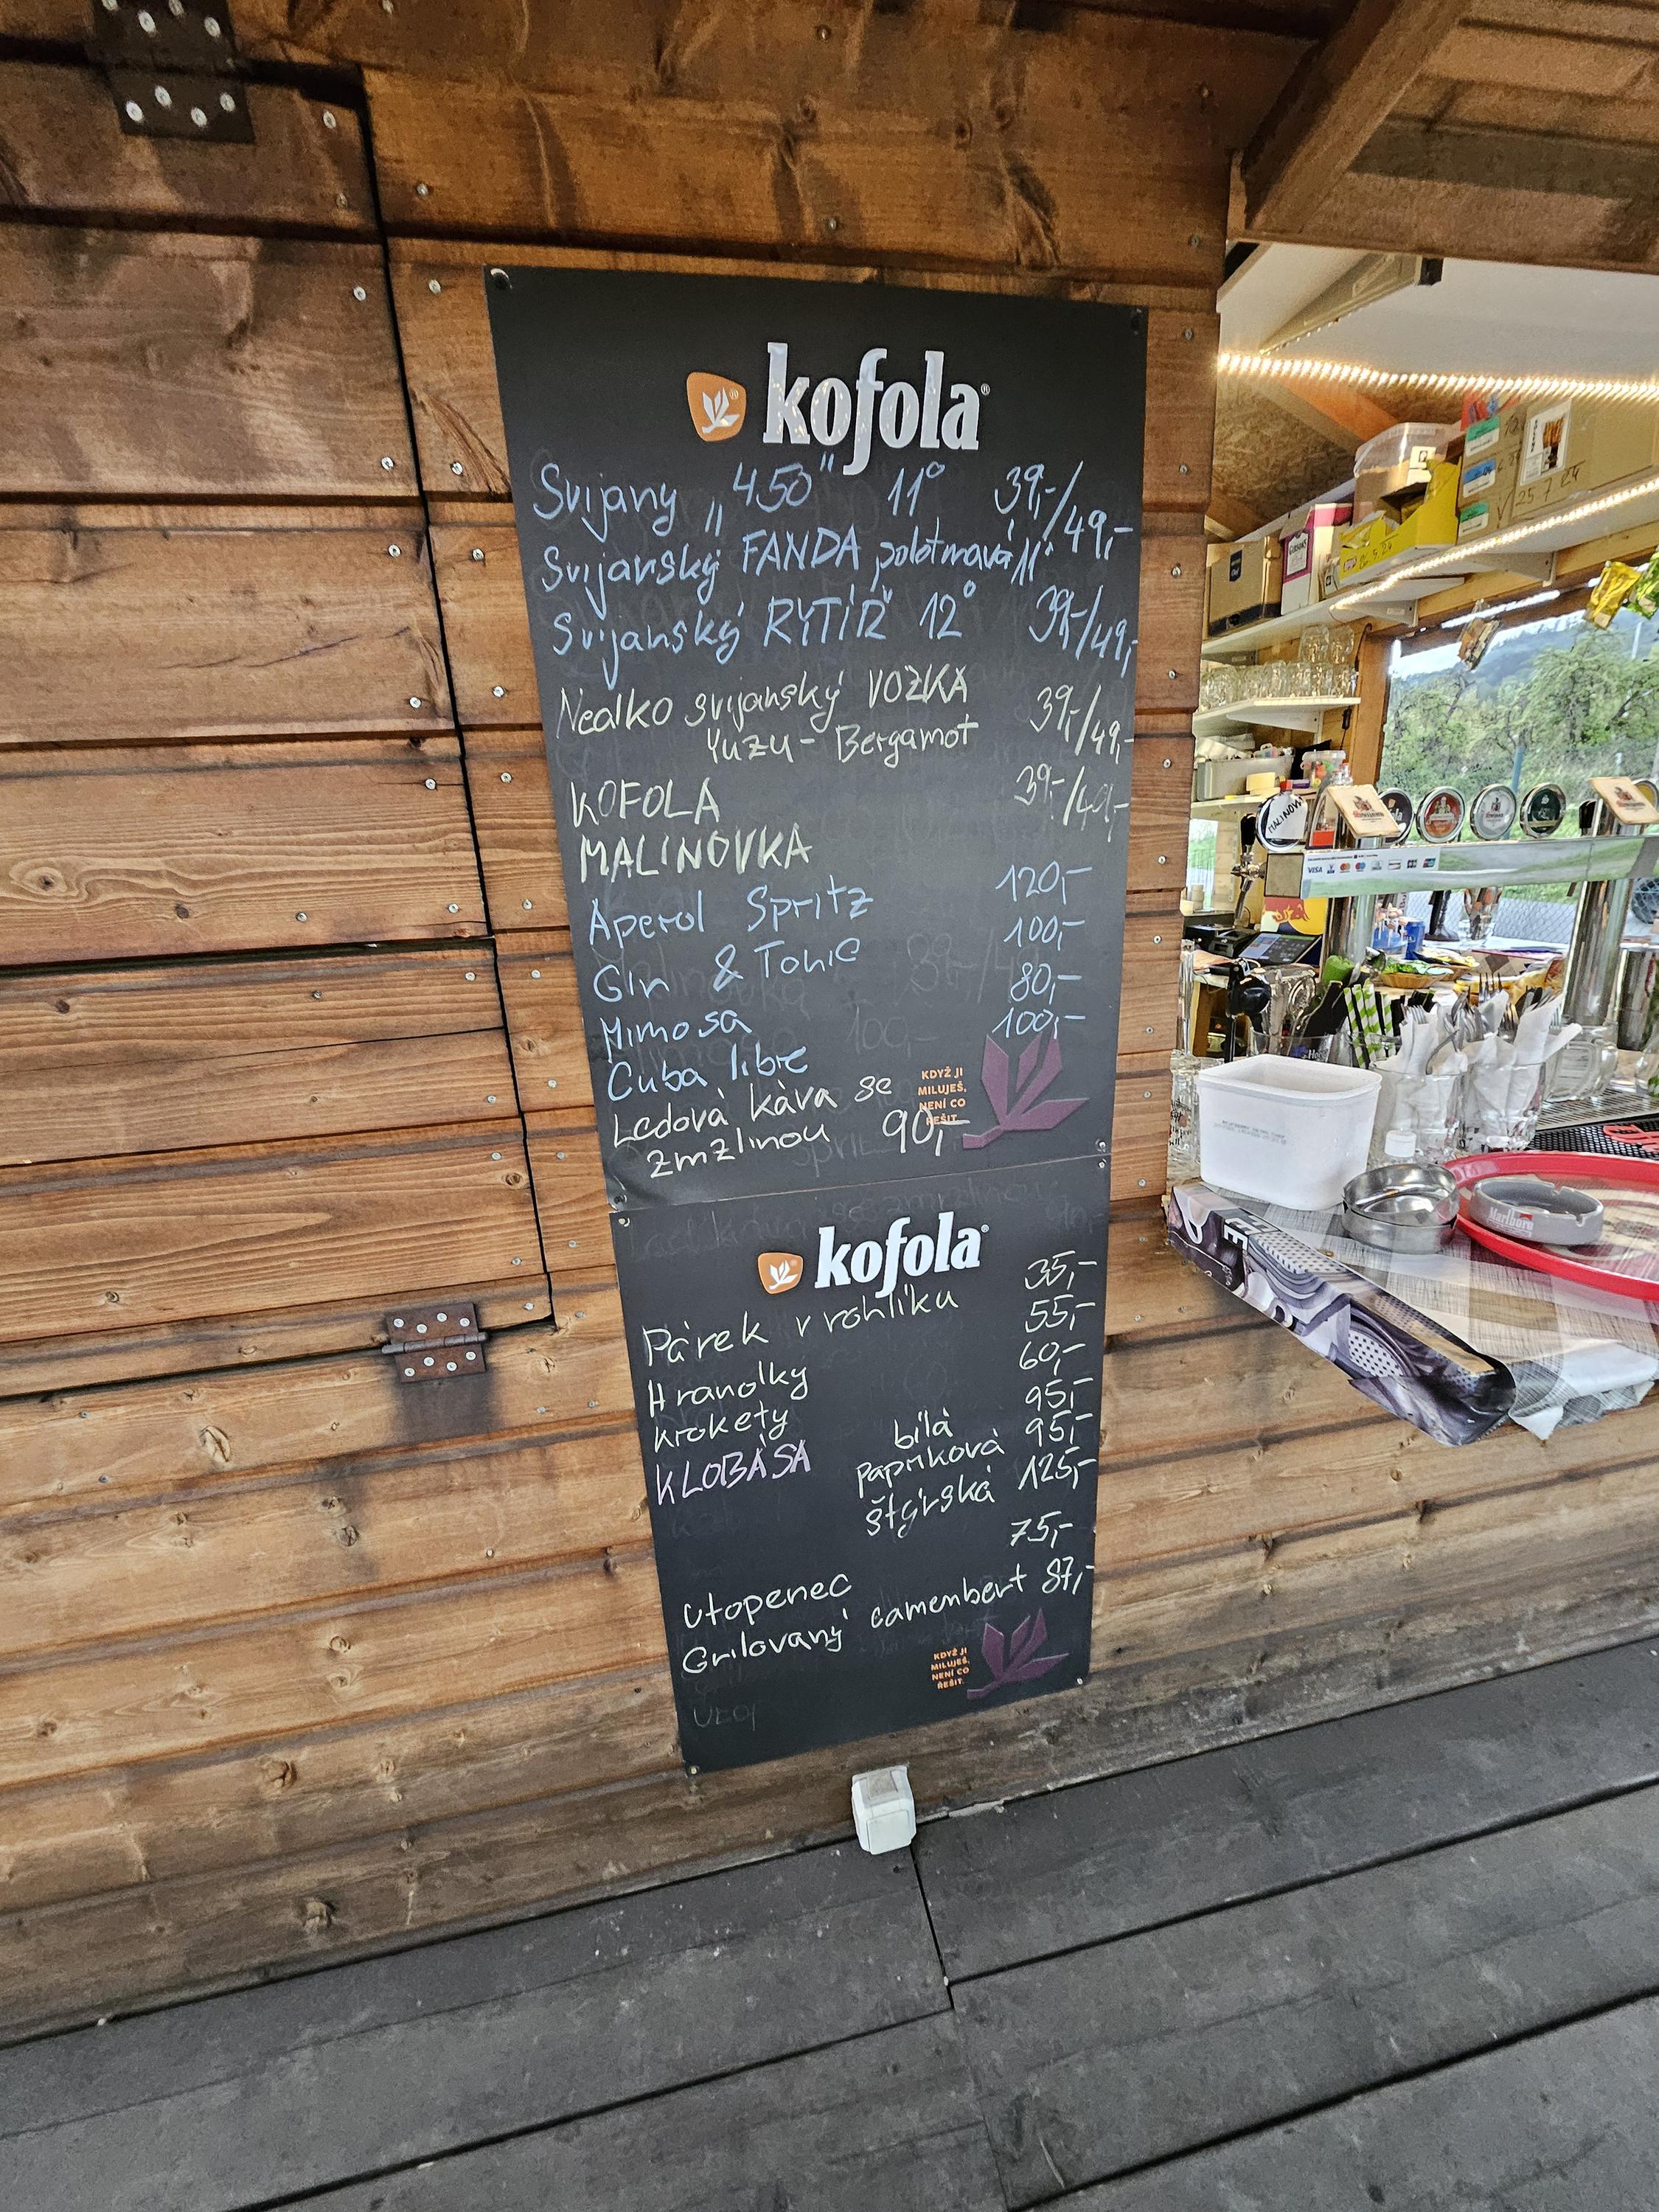 kofola
Svijany „450" 11° 39,-/49,-
Svijanský FANDA polotmavá 11°
Svijanský RYTÍŘ 12° 39,-/49,-
Nealko svijanský VOZKA 39,-/49,-
Yuzu - Bergamot
KOFOLA 39,-/49,-
MALINOVKA
Aperol Spritz 120,-
Gin & Tonic 100,-
Mimosa 80,-
Cuba libre 100,-
Ledová káva se
zmzlinou 90,-
KDYŽ JI
MILUJEŠ,
NENÍ CO
ŘEŠIT.
kofola
Párek v rohlíku 35,-
Hranolky 55,-
Krokety 60,-
KLOBÁSA bílá 95,-
papriková 95,-
štýrská 125,-
Utopenec 75,-
Grilovaný camembert 87,-
KDYŽ JI
MILUJEŠ,
NENÍ CO
ŘEŠIT.
MALINOVKA
VISA
Marlboro